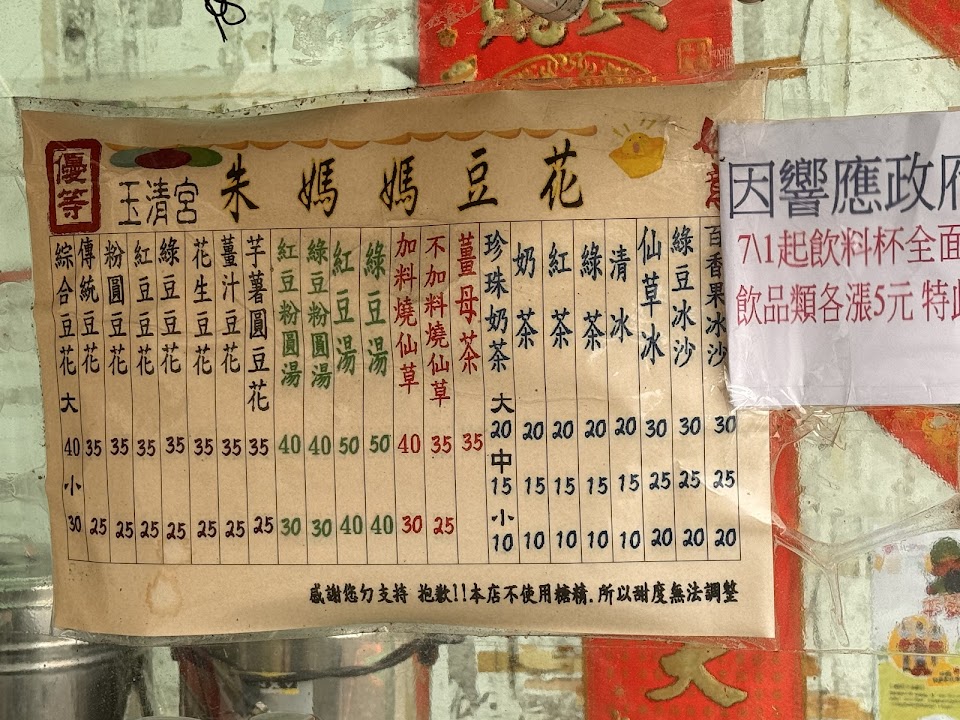 優等
玉清宮
朱媽媽豆花
綜合豆花 大 40 小 30
傳統豆花 35 25
粉圓豆花 35 25
紅豆豆花 35 25
綠豆豆花 35 25
花生豆花 35 25
薑汁豆花 35 25
芋薯圓豆花 35 25
紅豆粉圓湯 40 30
綠豆粉圓湯 40 30
紅豆湯 50 40
綠豆湯 50 40
加料燒仙草 40 30
不加料燒仙草 35 25
薑母茶 35
珍珠奶茶 大 20 中 15 小 10
奶茶 20 15 10
紅茶 20 15 10
綠茶 20 15 10
清冰 20 15 10
仙草冰 30 25 20
綠豆冰沙 30 25 20
百香果冰沙 30 25 20
感謝您ㄉ支持 抱歉!!本店不使用糖精.所以甜度無法調整
因響應政府
7\1起飲料杯全面
飲品類各漲5元 特此